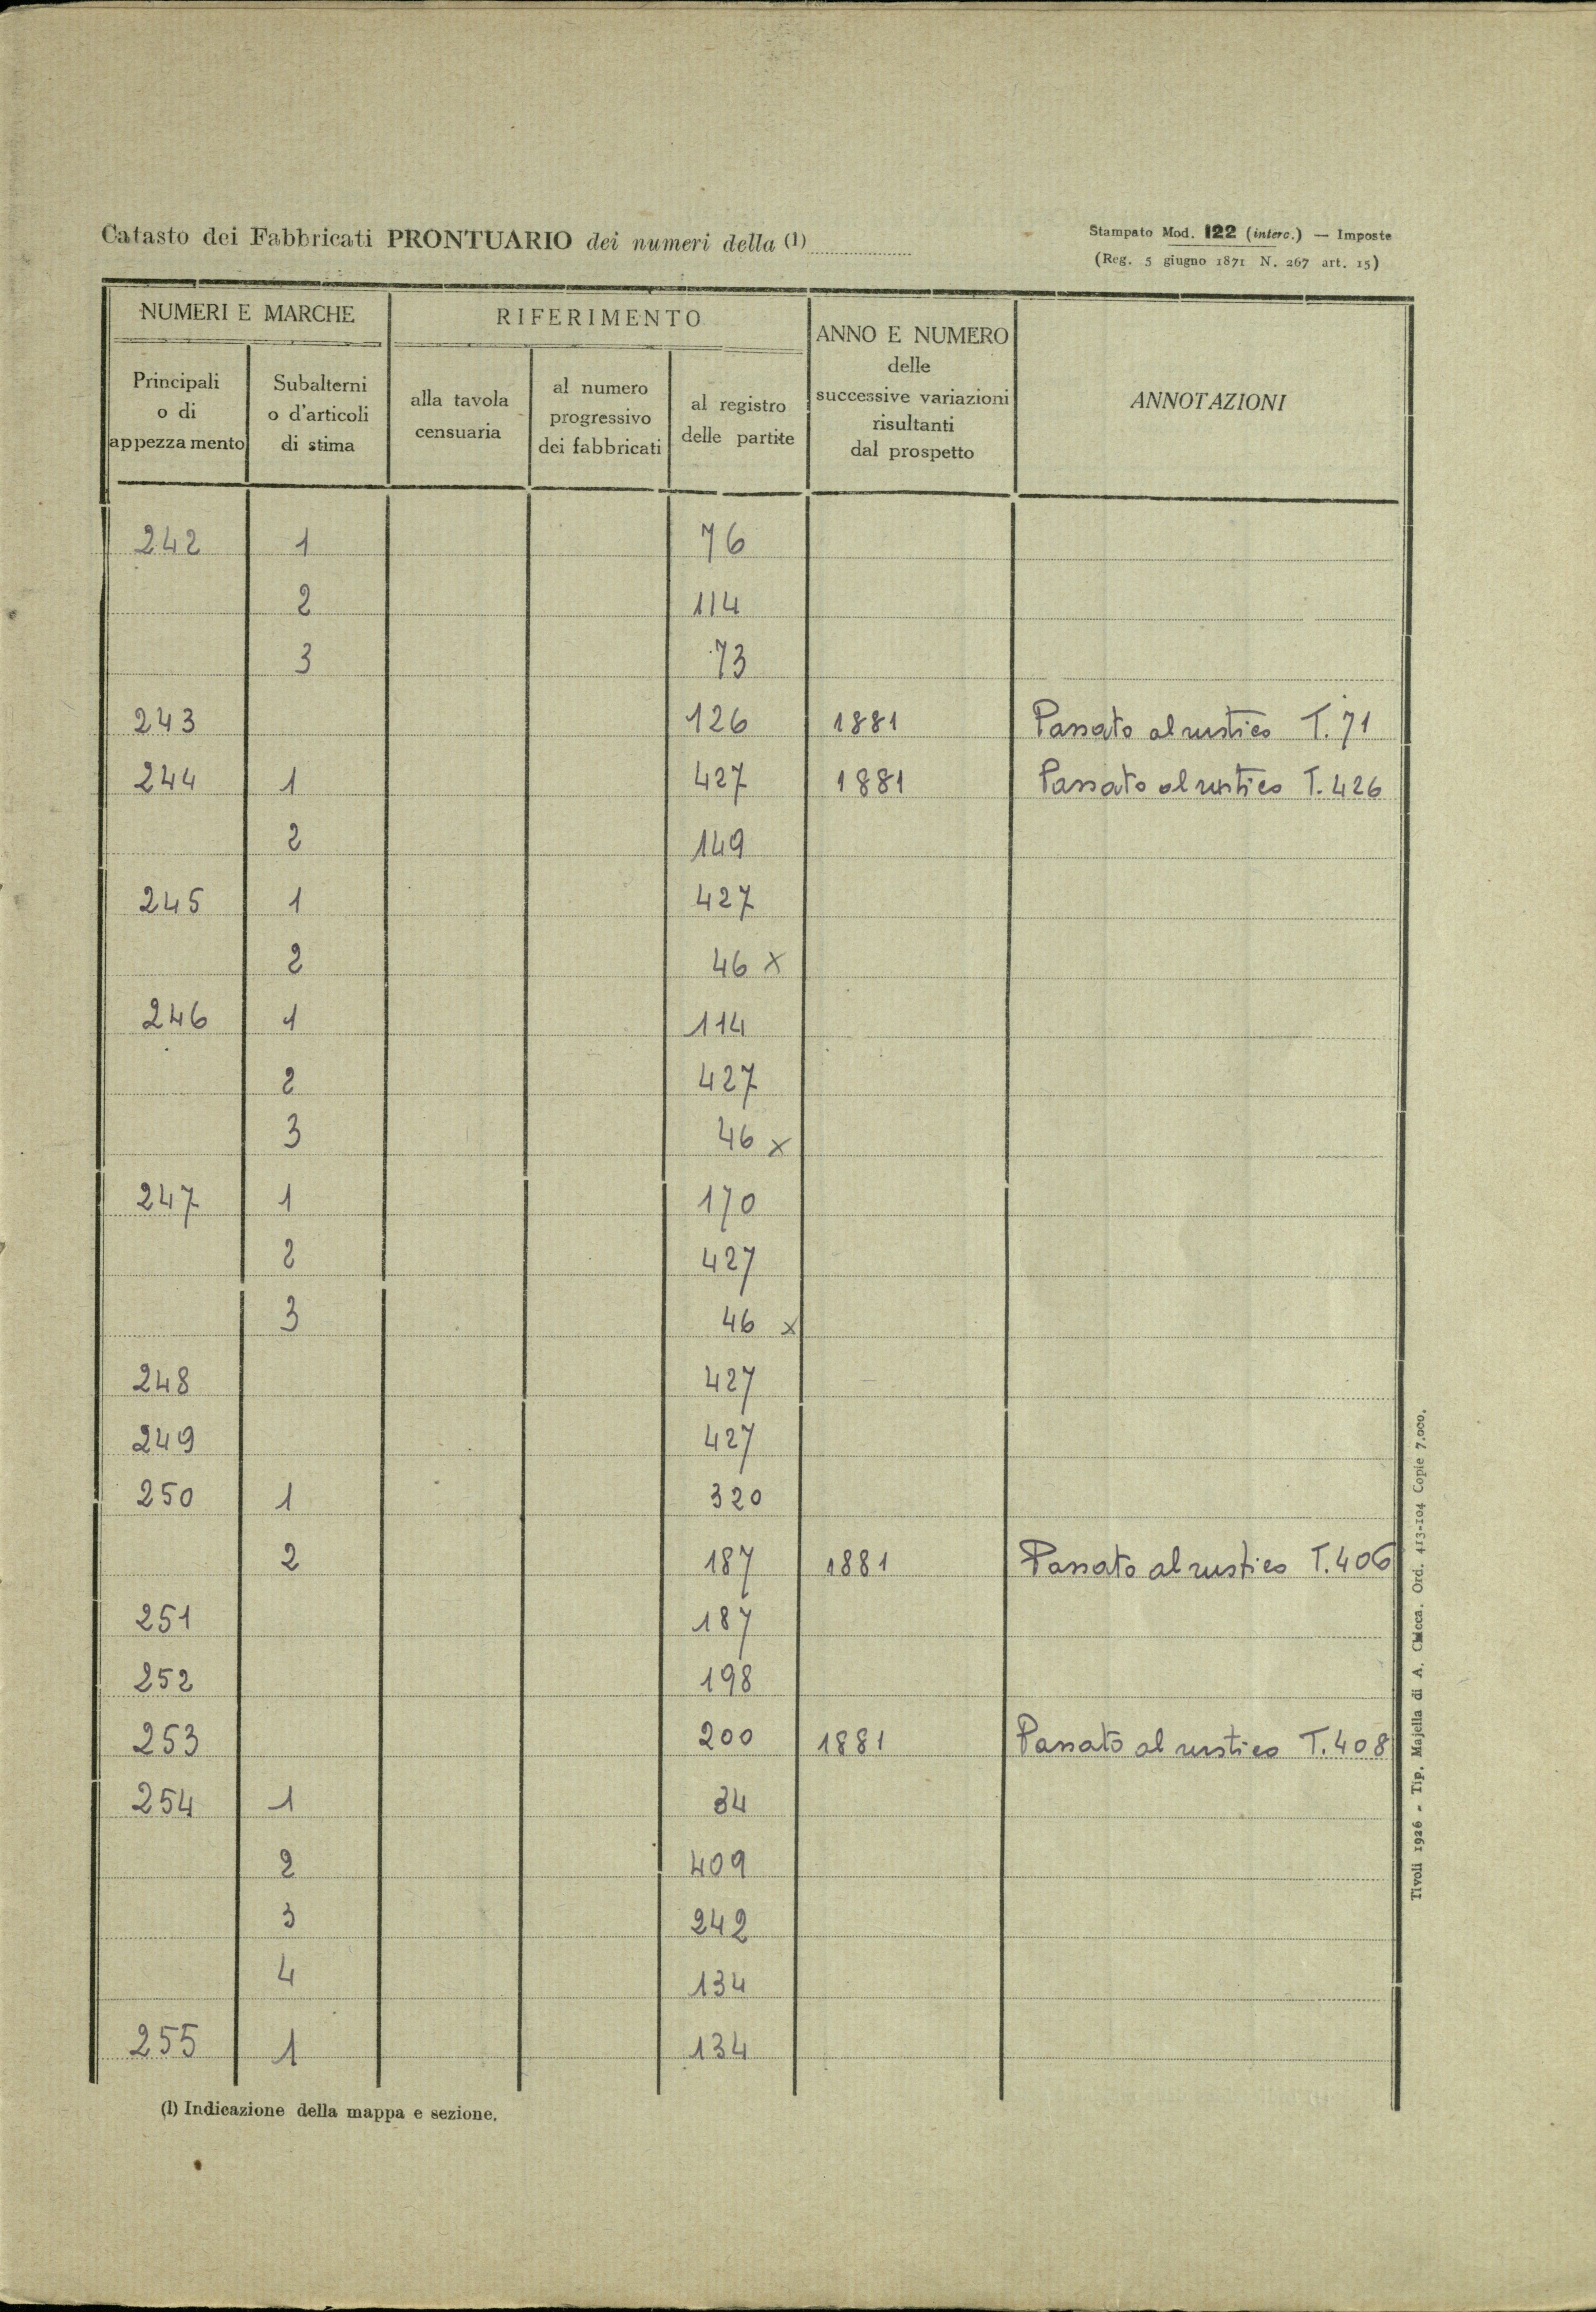 Catasto dei Fabbricati PRONTUARIO dei numeri della (1)
Stampato Mod. 122 (interc.) — Imposte
(Reg. 5 giugno 1871 N. 267 art. 15)
NUMERI E MARCHE
RIFERIMENTO
ANNO E NUMERO
delle
successive variazioni
risultanti
dal prospetto
ANNOTAZIONI
Principali
o di
appezzamento
Subalterni
o d'articoli
di stima
alla tavola
censuaria
al numero
progressivo
dei fabbricati
al registro
delle partite
242 1 76
2 114
3 73
243 126 1881 Passato al rustico T. 71
244 1 427 1881 Passato al rustico T. 426
2 149
245 1 427
2 46 x
246 1 114
2 427
3 46 x
247 1 170
2 427
3 46 x
248 427
249 427
250 1 320
2 187 1881 Passato al rustico T. 406
251 187
252 198
253 200 1881 Passato al rustico T. 408
254 1 34
2 409
3 242
4 134
255 1 134
(1) Indicazione della mappa e sezione.
Tivoli 1926 - Tip. Majella di A. Chicca. Ord. 413-104 Copie 7.000.